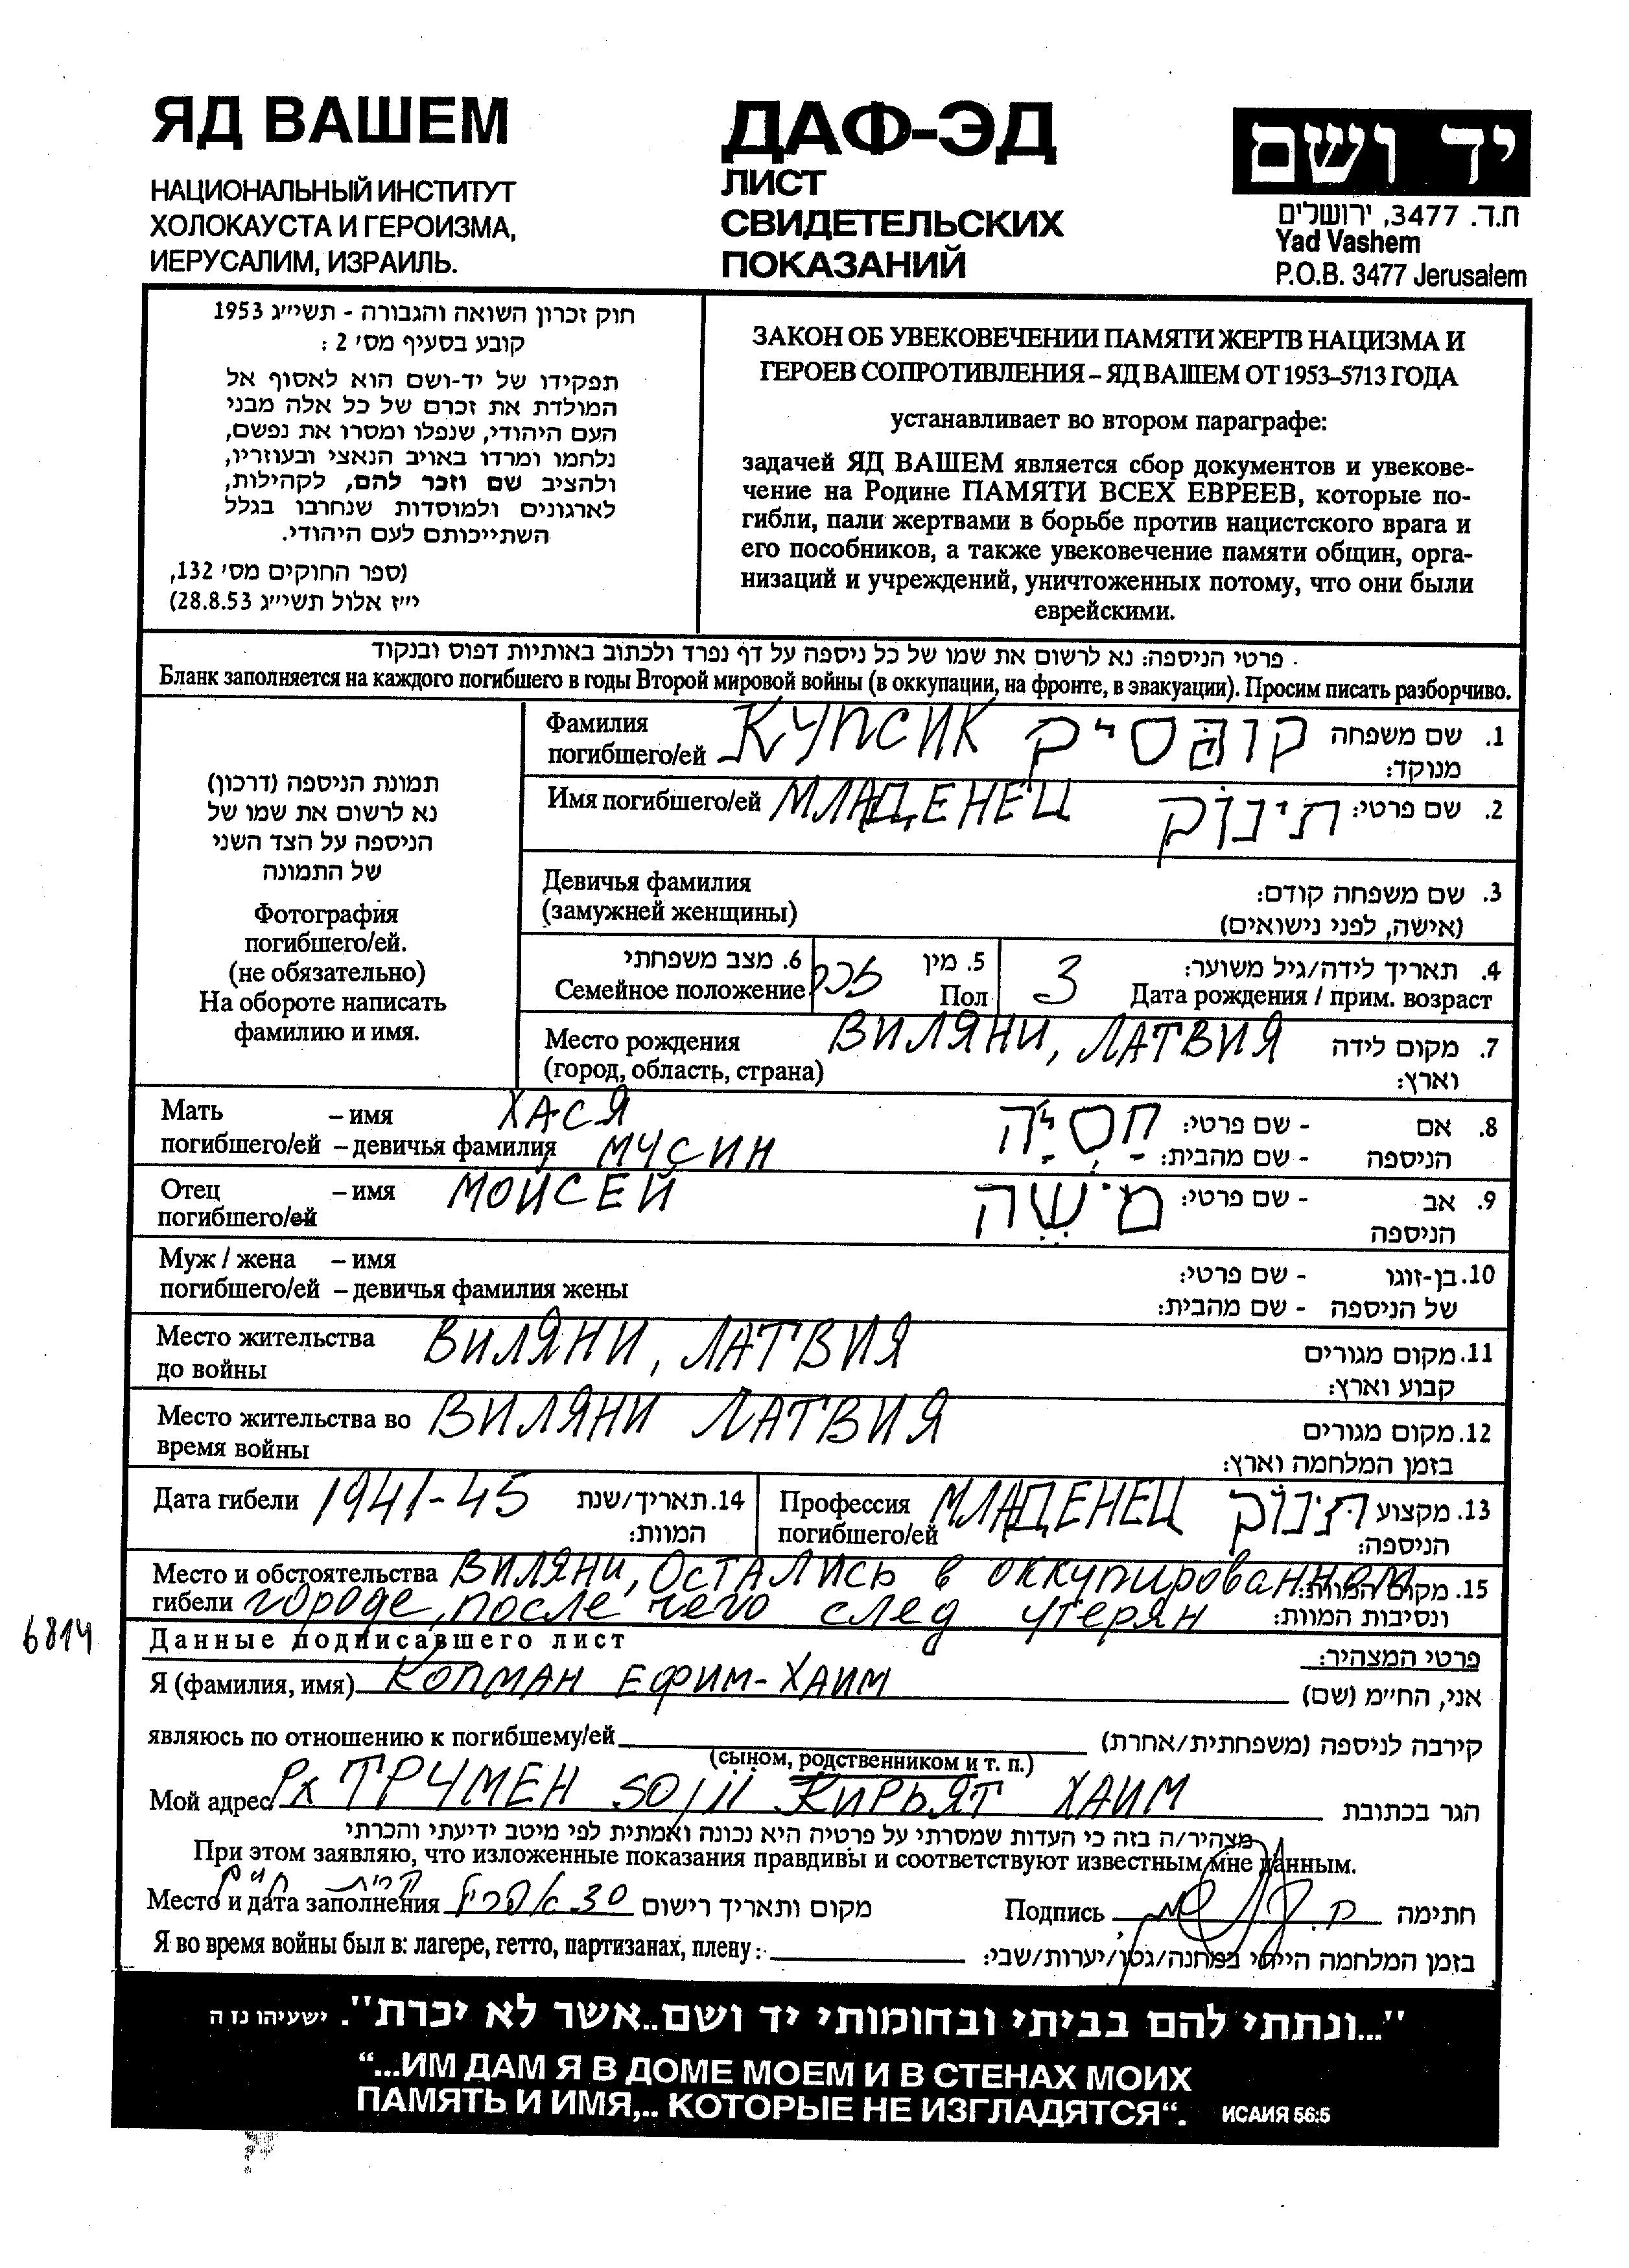 ЯД ВАШЕМ
НАЦИОНАЛЬНЫЙ ИНСТИТУТ
ХОЛОКАУСТА И ГЕРОИЗМА,
ИЕРУСАЛИМ, ИЗРАИЛЬ.
ДАФ-ЭД
ЛИСТ
СВИДЕТЕЛЬСКИХ
ПОКАЗАНИЙ
יד ושם
ת.ד. 3477, ירושלים
Yad Vashem
P.O.B. 3477 Jerusalem
חוק זכרון השואה והגבורה - תשי״ג 1953
קובע בסעיף מס׳ 2 :
תפקידו של יד-ושם הוא לאסוף אל
המולדת את זכרם של כל אלה מבני
העם היהודי, שנפלו ומסרו את נפשם,
נלחמו ומרדו באויב הנאצי ובעוזריו,
ולהציב שם וזכר להם, לקהילות,
לארגונים ולמוסדות שנחרבו בגלל
השתייכותם לעם היהודי.
(ספר החוקים מס׳ 132,
י״ז אלול תשי״ג 28.8.53)
ЗАКОН ОБ УВЕКОВЕЧЕНИИ ПАМЯТИ ЖЕРТВ НАЦИЗМА И
ГЕРОЕВ СОПРОТИВЛЕНИЯ – ЯД ВАШЕМ ОТ 1953–5713 ГОДА
устанавливает во втором параграфе:
задачей ЯД ВАШЕМ является сбор документов и увекове-
чение на Родине ПАМЯТИ ВСЕХ ЕВРЕЕВ, которые по-
гибли, пали жертвами в борьбе против нацистского врага и
его пособников, а также увековечение памяти общин, орга-
низаций и учреждений, уничтоженных потому, что они были
еврейскими.
פרטי הניספה: נא לרשום את שמו של כל ניספה על דף נפרד ולכתוב באותיות דפוס ובנקוד
Бланк заполняется на каждого погибшего в годы Второй мировой войны (в оккупации, на фронте, в эвакуации). Просим писать разборчиво.
תמונת הניספה (דרכון)
נא לרשום את שמו של
הניספה על הצד השני
של התמונה
Фотография
погибшего/ей.
(не обязательно)
На обороте написать
фамилию и имя.
Фамилия
погибшего/ей КУПСИК קופסיק 1. שם משפחה
מנוקד:
Имя погибшего/ей МЛАДЕНЕЦ תינוק 2. שם פרטי:
Девичья фамилия 3. שם משפחה קודם:
(замужней женщины) (אישה, לפני נישואים)
6. מצב משפחתי 5. מין 4. תאריך לידה/גיל משוער:
Семейное положение זכר Пол 3 Дата рождения / прим. возраст
Место рождения ВИЛЯНИ, ЛАТВИЯ 7. מקום לידה
(город, область, страна) וארץ:
Мать – имя ХАСЯ חַסְיָה - שם פרטי: 8. אם
погибшего/ей – девичья фамилия МУСИН - שם מהבית: הניספה
Отец – имя МОИСЕЙ משה - שם פרטי: 9. אב
погибшего/ей הניספה
Муж / жена – имя - שם פרטי: 10. בן-זוגו
погибшего/ей – девичья фамилия жены - שם מהבית: של הניספה
Место жительства ВИЛЯНИ, ЛАТВИЯ 11. מקום מגורים
до войны קבוע וארץ:
Место жительства во ВИЛЯНИ ЛАТВИЯ 12. מקום מגורים
время войны בזמן המלחמה וארץ:
Дата гибели 1941-45 14. תאריך/שנת
המוות:
Профессия МЛАДЕНЕЦ תינוק 13. מקצוע
погибшего/ей הניספה:
Место и обстоятельства ВИЛЯНИ, ОСТАЛИСЬ в оккупированном 15. מקום המוות:
гибели городе, после чего след утерян ונסיבות המוות:
6814
Данные подписавшего лист פרטי המצהיר:
Я (фамилия, имя) КОПМАН ЕФИМ-ХАИМ אני, החי״מ (שם)
являюсь по отношению к погибшему/ей קירבה לניספה (משפחתית/אחרת)
(сыном, родственником и т. п.)
Мой адрес ТРУМЕН 50/11 КИРЬЯТ ХАИМ הגר בכתובת
מצהיר/ה בזה כי העדות שמסרתי על פרטיה היא נכונה ואמתית לפי מיטב ידיעתי והכרתי
При этом заявляю, что изложенные показания правдивы и соответствуют известным мне данным.
קרית חיים
Место и дата заполнения 30 אפריל מקום ותאריך רישום Подпись חתימה
Я во время войны был в: лагере, гетто, партизанах, плену: בזמן המלחמה הייתי במחנה/גטו/יערות/שבי:
"...ונתתי להם בביתי ובחומותי יד ושם..אשר לא יכרת". ישעיהו נז ה
“...ИМ ДАМ Я В ДОМЕ МОЕМ И В СТЕНАХ МОИХ
ПАМЯТЬ И ИМЯ,.. КОТОРЫЕ НЕ ИЗГЛАДЯТСЯ“. ИСАИЯ 56:5